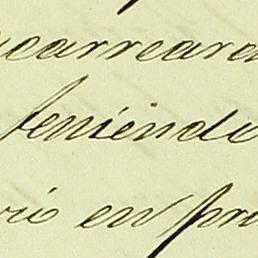 acarreara
teniendo
rio en pri